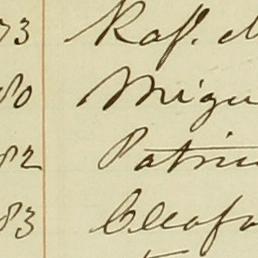 73 Raf. M
80 Migu
82 Patric
83 Cleofa